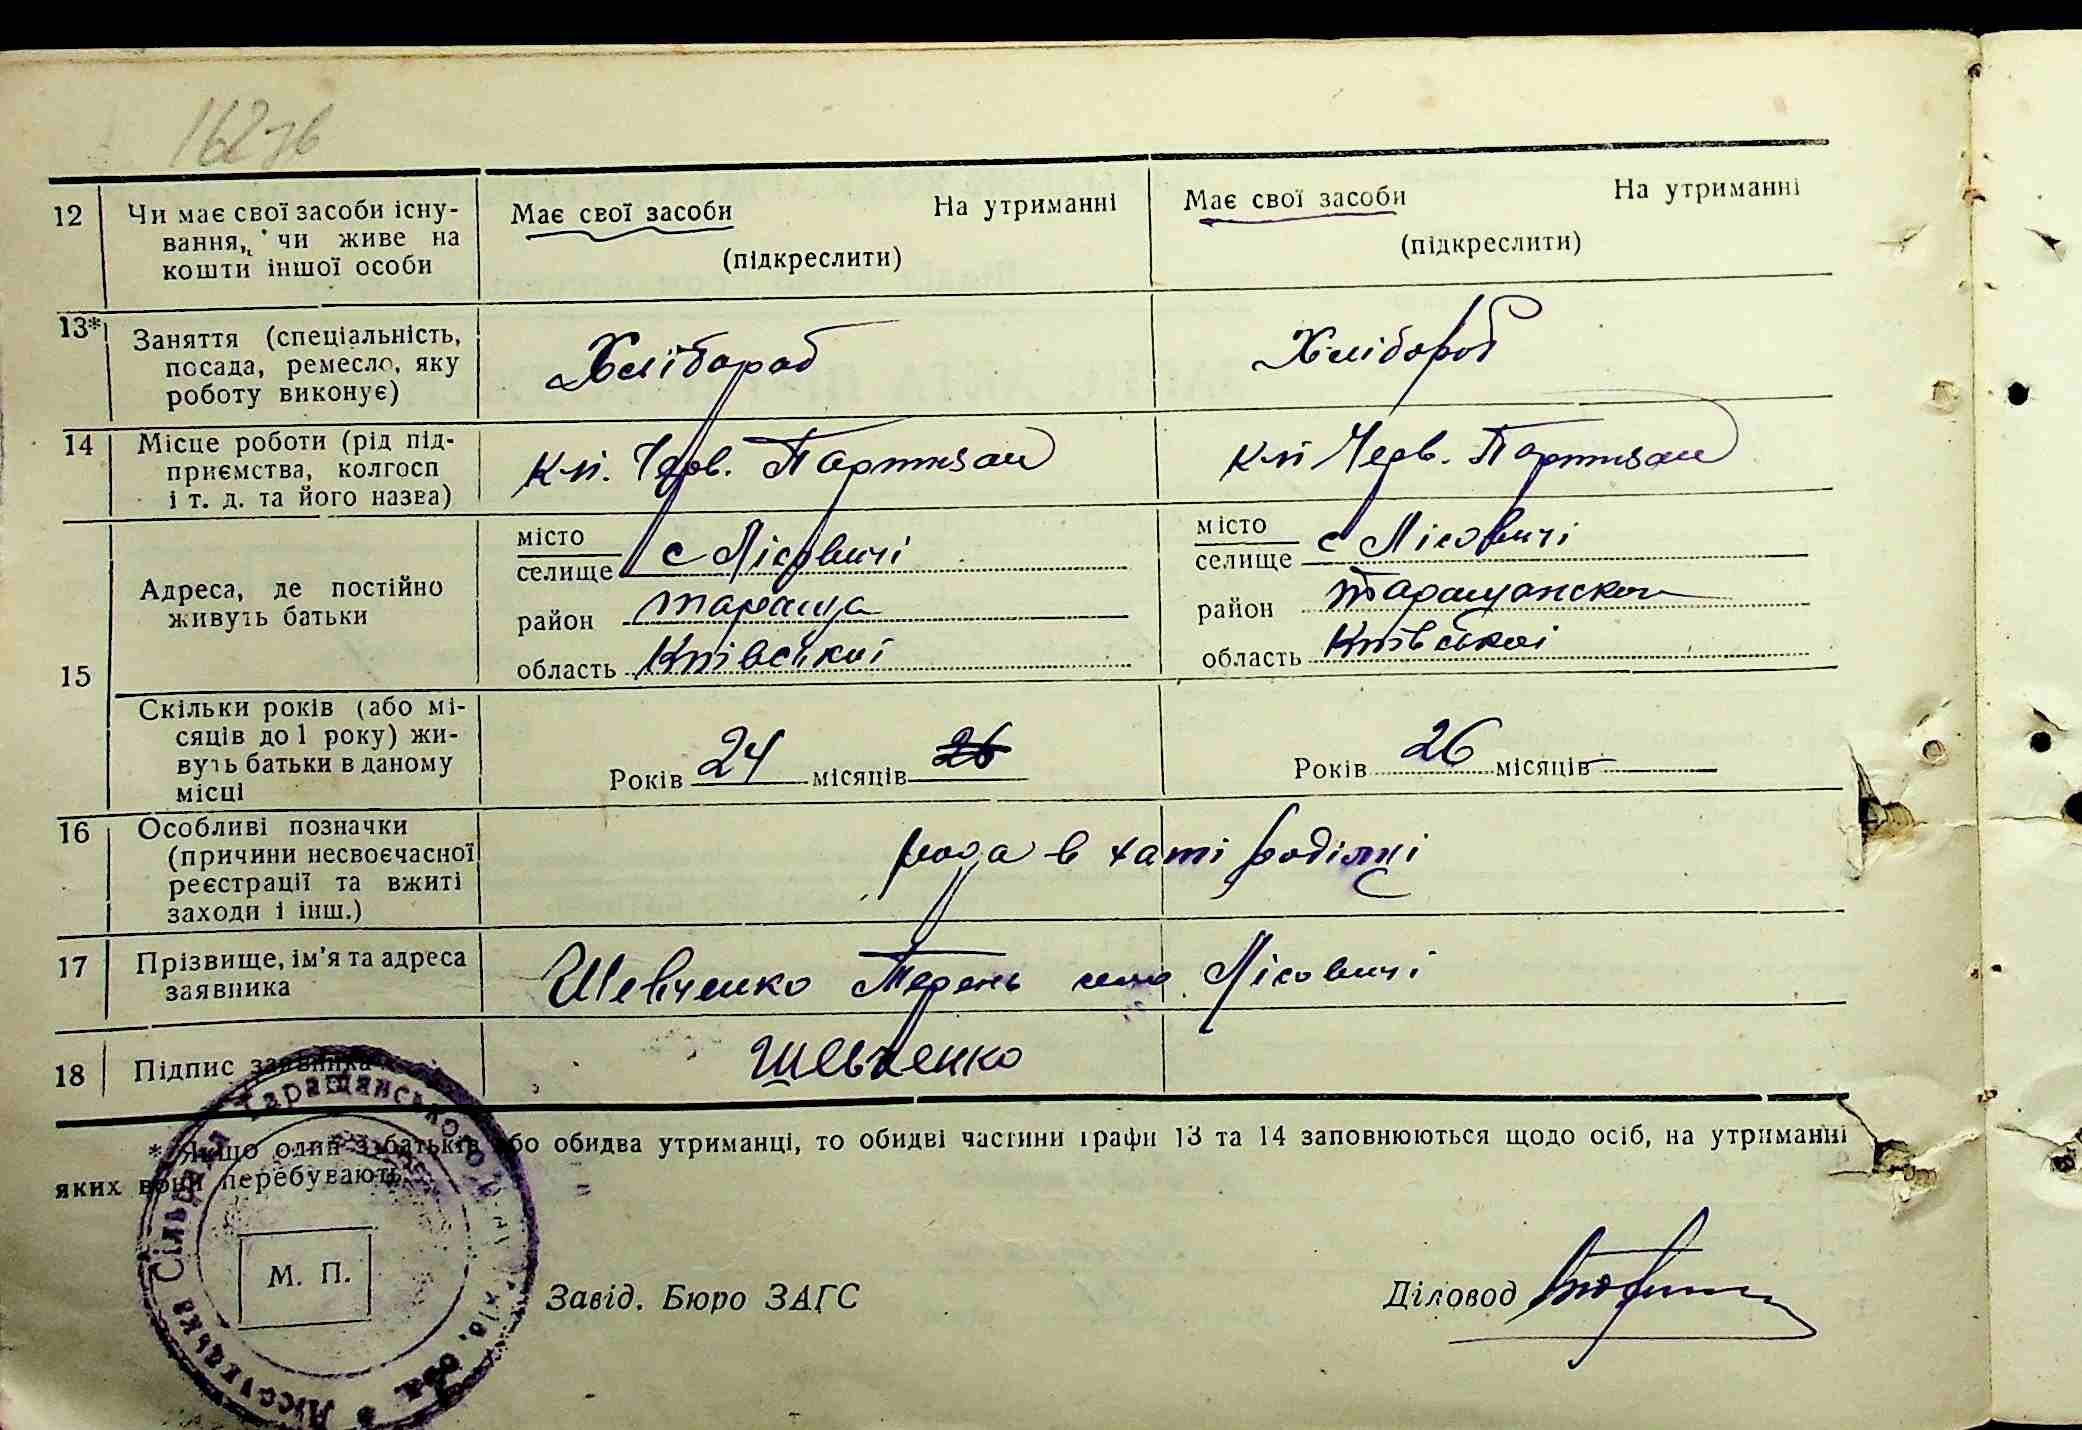 162зв
12 Чи має свої засоби існу- Має свої засоби На утриманні Має свої засоби На утриманні
вання, чи живе на
кошти іншої особи (підкреслити) (підкреслити)
13* Заняття (спеціальність,
посада, ремесло, яку Хлібороб Хлібороб
роботу виконує)
14 Місце роботи (рід під-
приємства, колгосп Кл. Черв. Партизан Кл Черв. Партизан
і т. д. та його назва)
15 Адреса, де постійно
живуть батьки
місто
селище с Лісовичі
район Тараща
область Київської
місто
селище с Лісовичі
район Таращанском
область Київської
Скільки років (або мі-
сяців до 1 року) жи-
вуть батьки в даному
місці
Років 24 місяців 26 Років 26 місяців
16 Особливі позначки
(причини несвоєчасної
реєстрації та вжиті
заходи і інш.)
в хаті роділні
17 Прізвище, ім'я та адреса
заявника
Шевченко Терень село Лісовичі
18 Підпис заявника Шевченко
* Якщо один з батьків або обидва утриманці, то обидві частини графи 13 та 14 заповнюються щодо осіб, на утриманні
яких вони перебувають.
Сільська Таращанського
М. П.
Завід. Бюро ЗАГС Діловод